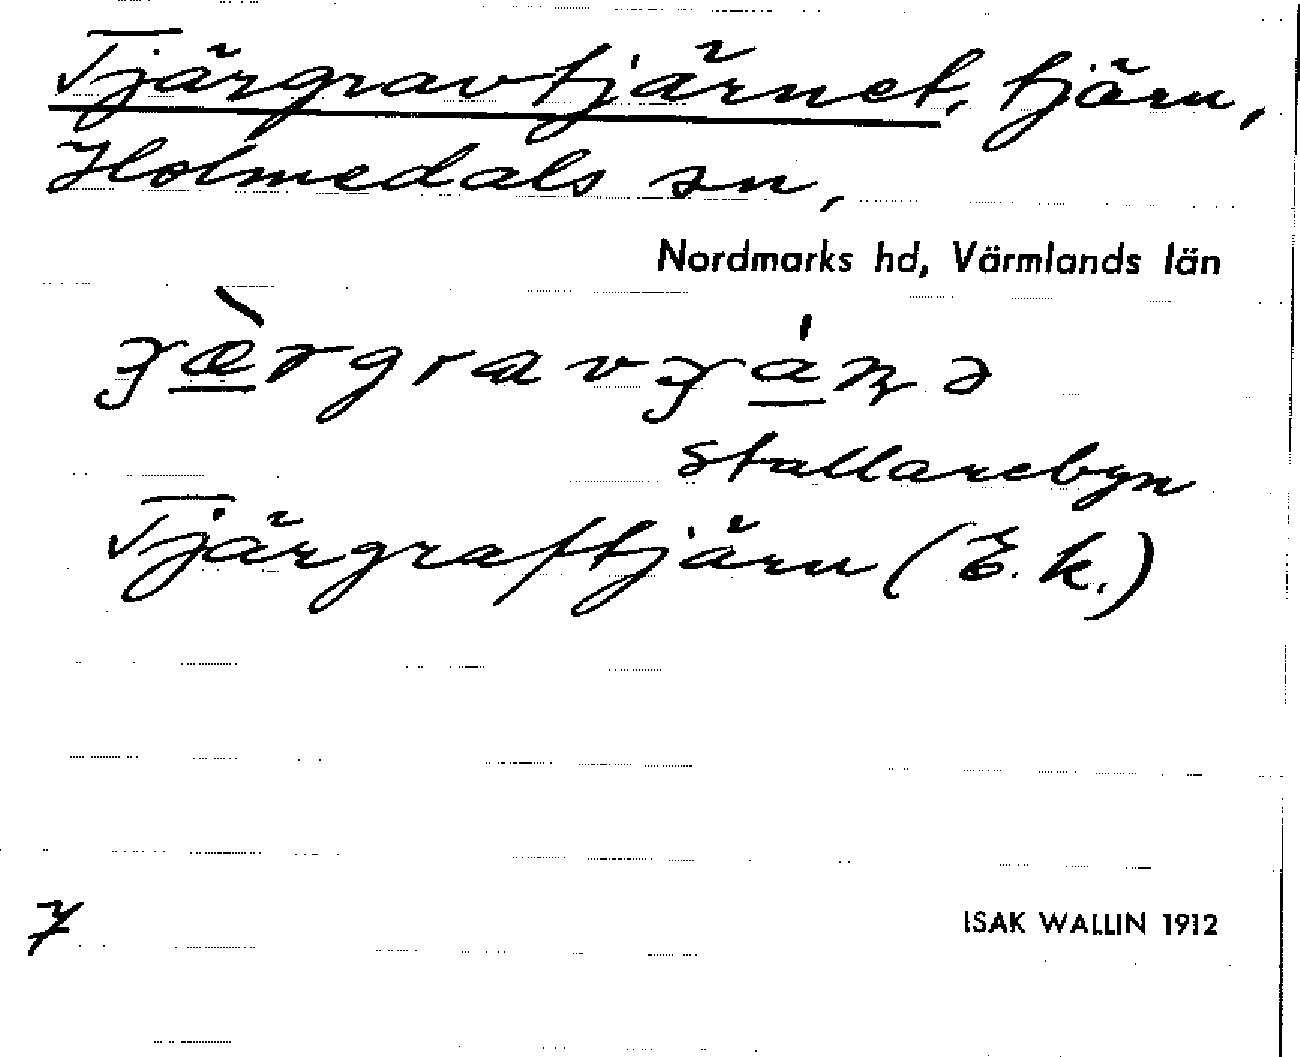 Tjärgravtjärnet, tjärn,
Holmedals sn,
Nordmarks hd, Värmlands län
Stallarebyn
Tjärgraftjärn (E.k.)
7
ISAK WALLIN 1912